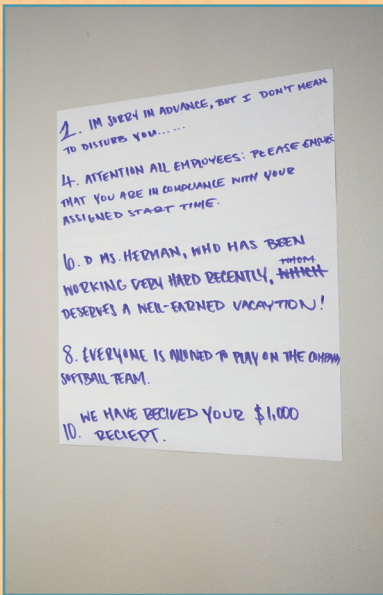 1. IM SORRY IN ADVANCE, BUT I DON'T MEAN
TO DISTURB YOU......
4. ATTENTION ALL EMPLOYEES: PLEASE ENSURE
THAT YOU ARE IN COMPLIANCE WITH YOUR
ASSIGNED START TIME.
6. D MS. HERMAN, WHO HAS BEEN
WHOM
WORKING VERY HARD RECENTLY, WHICH
DESERVES A WELL-EARNED VACAYTION!
8. EVERYONE IS ALLOWED TO PLAY ON THE COMPANY
SOFTBALL TEAM.
10. WE HAVE RECIVED YOUR $1,000
RECIEPT.